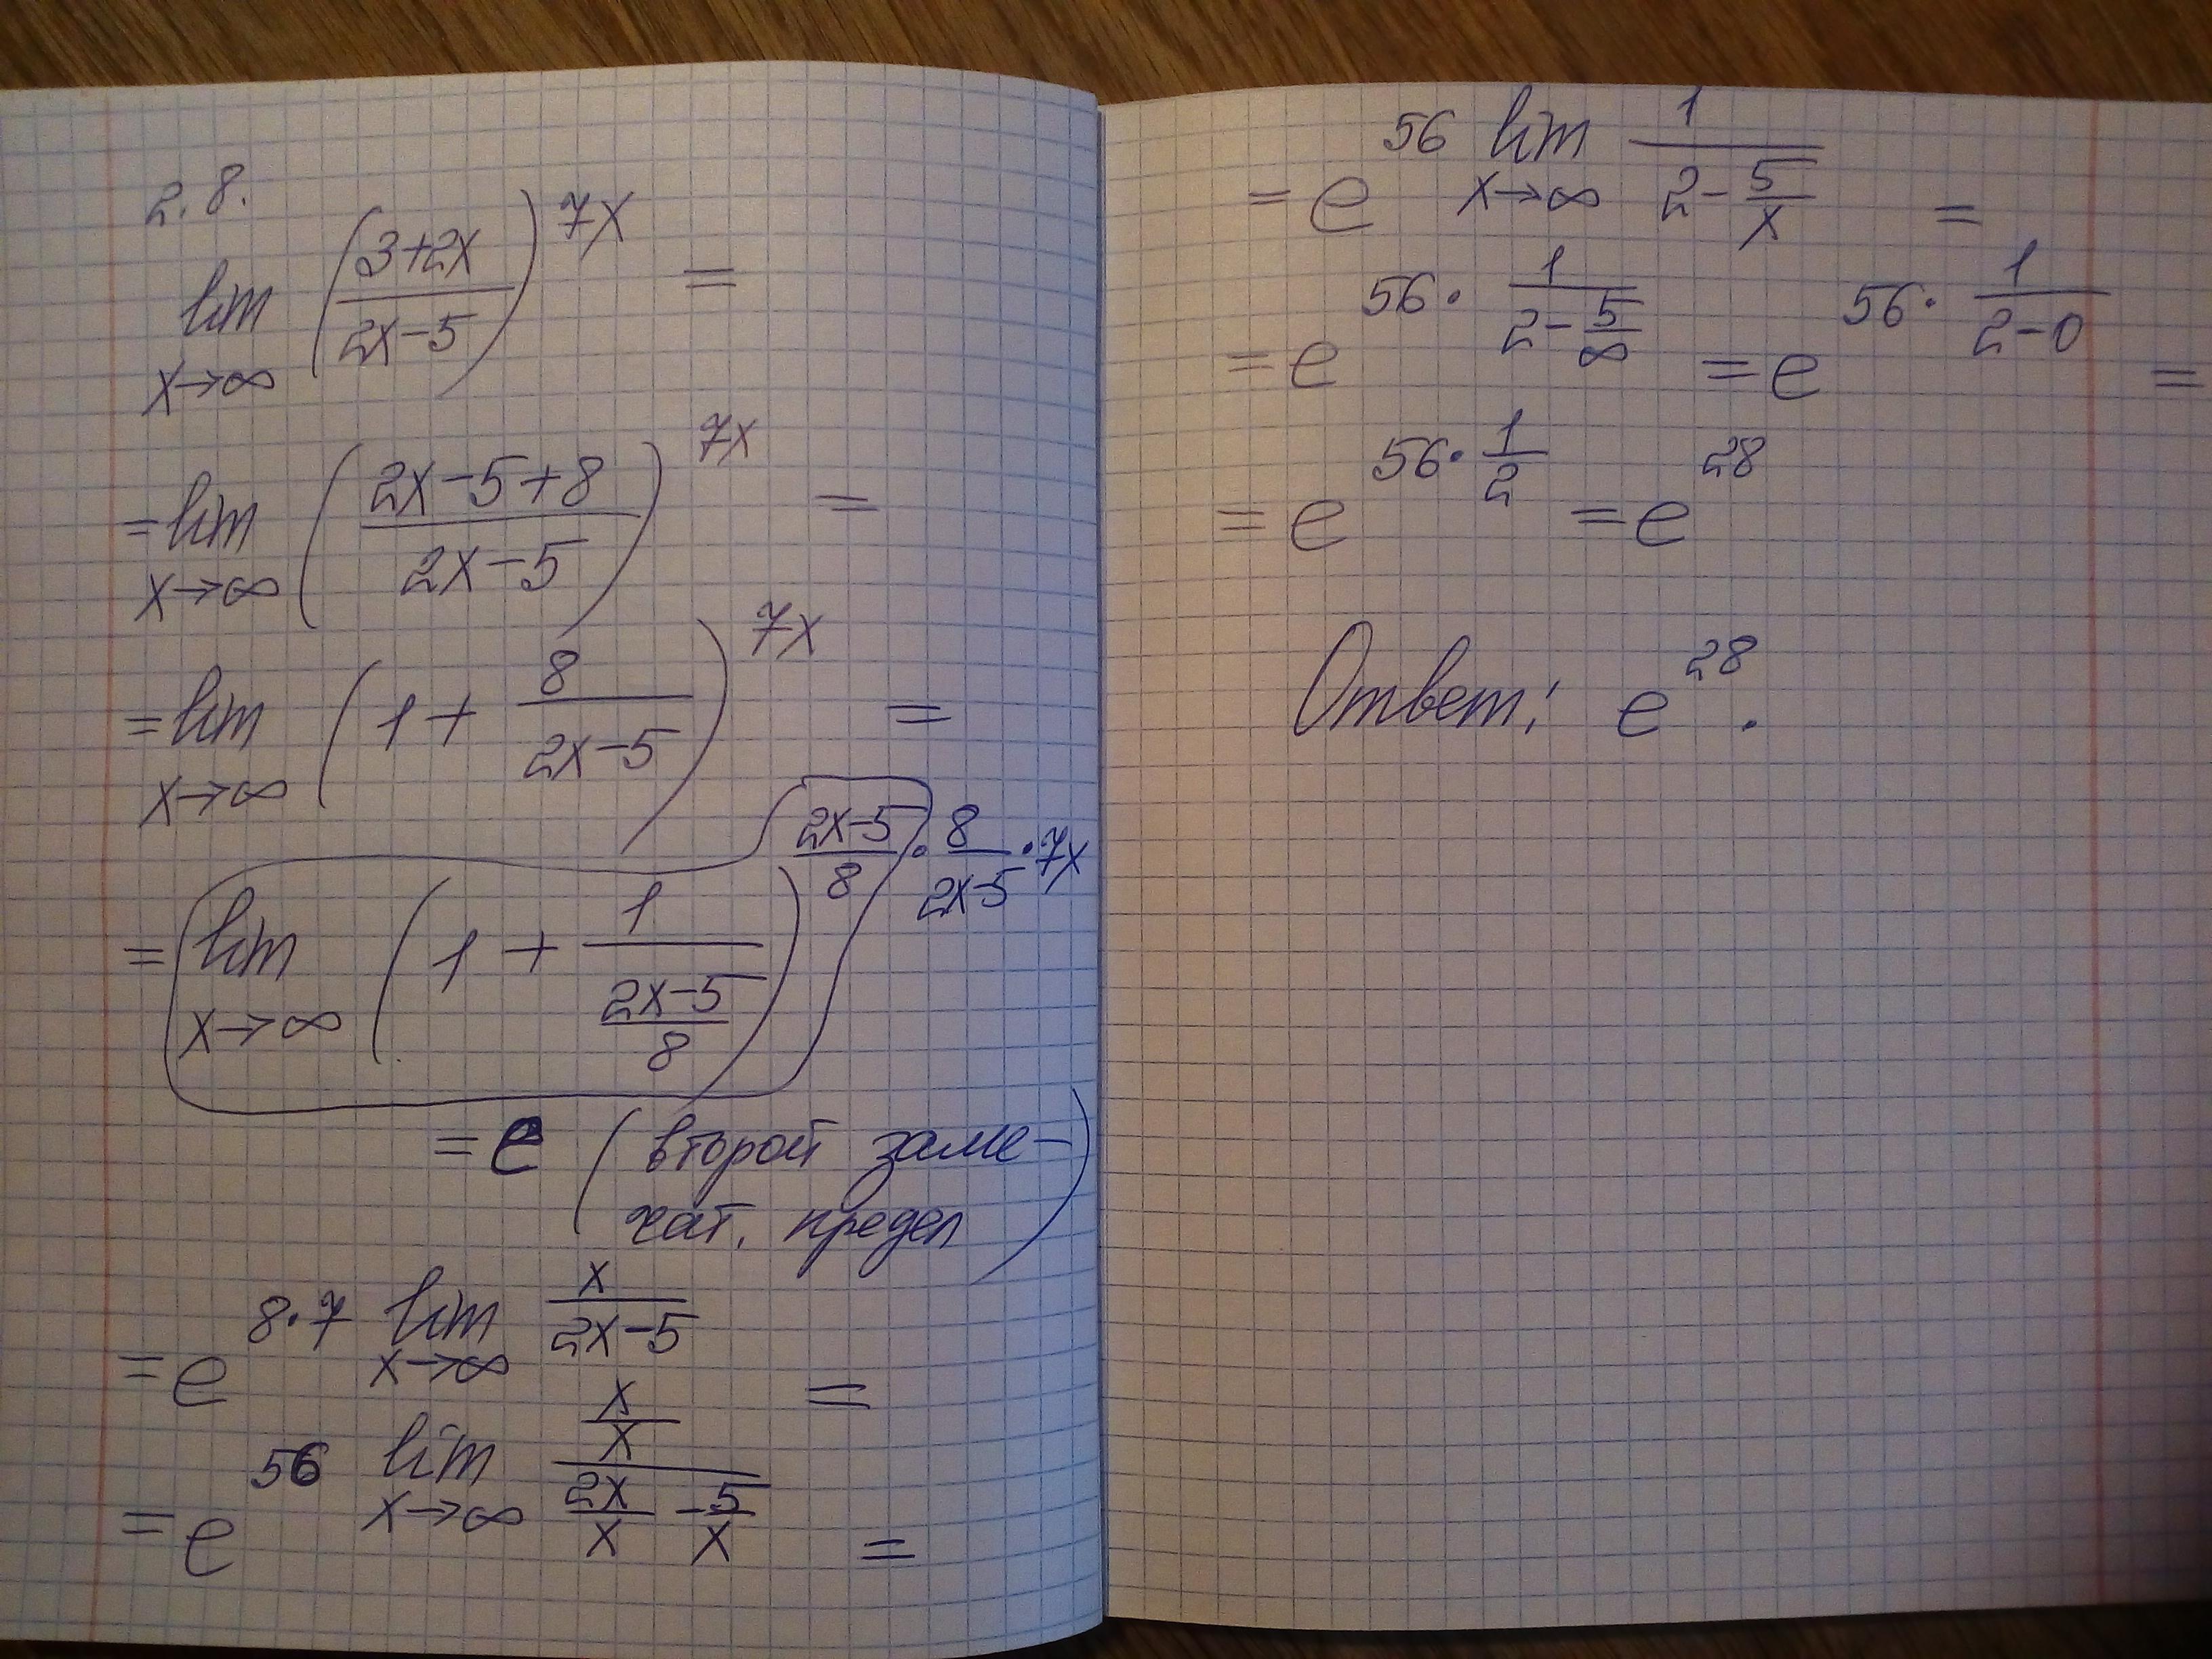 2.8.
lim x→∞ ((3+2x)/(2x-5))^(7x) =
= lim x→∞ ((2x-5+8)/(2x-5))^(7x) =
= lim x→∞ (1 + 8/(2x-5))^(7x) =
= lim x→∞ (1 + 1/((2x-5)/8))^((2x-5)/8 · 8/(2x-5) · 7x)
= e (второй заме-
чат. предел)
= e^(8·7 lim x→∞ x/(2x-5)) =
= e^(56 lim x→∞ (x/x)/(2x/x - 5/x)) =
= e^(56 lim x→∞ 1/(2 - 5/x)) =
= e^(56 · 1/(2 - 5/∞)) = e^(56 · 1/(2-0)) =
= e^(56 · 1/2) = e^28
Ответ: e^28.